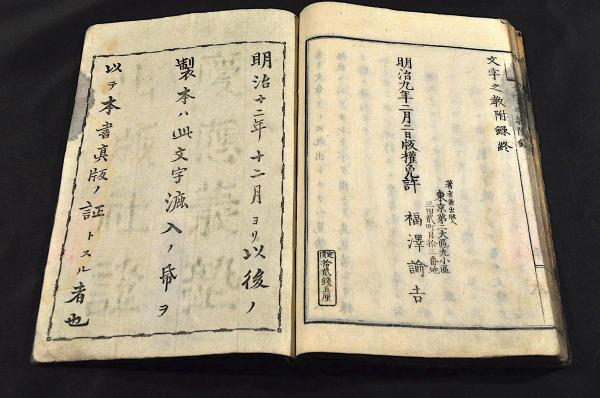 文字之教附録終
明治九年二月二日版權免許
著者兼出版人
東京第二大區九小區
三田貳町目拾三番地
福澤諭吉
定價拾貳錢五厘
明治十二年十二月ヨリ以後ノ
製本ハ此文字漉入ノ帋ヲ
以テ本書真版ノ証トスル者也